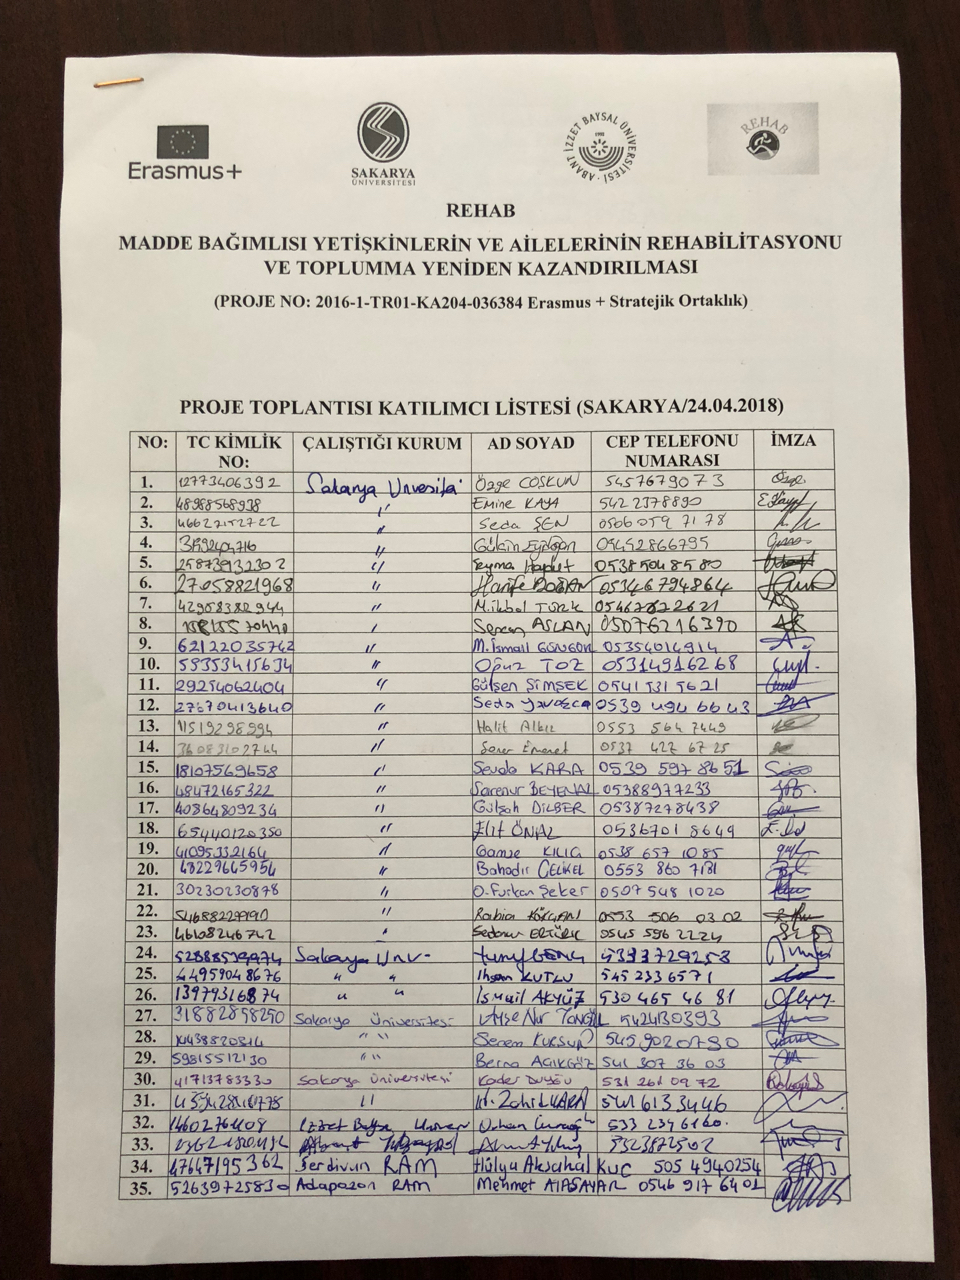 Erasmus+
SAKARYA
ÜNİVERSİTESİ
ABANT İZZET BAYSAL ÜNİVERSİTESİ
1992
REHAB
REHAB
MADDE BAĞIMLISI YETİŞKİNLERİN VE AİLELERİNİN REHABİLİTASYONU
VE TOPLUMMA YENİDEN KAZANDIRILMASI
(PROJE NO: 2016-1-TR01-KA204-036384 Erasmus + Stratejik Ortaklık)
PROJE TOPLANTISI KATILIMCI LİSTESİ (SAKARYA/24.04.2018)
NO: TC KİMLİK NO: ÇALIŞTIĞI KURUM AD SOYAD CEP TELEFONU NUMARASI İMZA
1. 12773406392 Sakarya Ünvesitesi Özge COŞKUN 5457679073
2. 48988568938 " Emine KAYA 542 2378890
3. 46627152722 " Seda ŞEN 0506 059 71 78
4. " Gülsin 05452866795
5. 25873932302 " Şeyma 0538 508 85 80
6. 27058821968 " Hanife DOĞAN 05346794864
7. 42958382944 " TÜRK
8. " Seren ASLAN 05076216390
9. 62122035742 " M. İsmail GÜNGÖR 05354014914
10. 58353415634 " Oğuz TOZ 05314916268
11. 29254062404 " Gülşen ŞİMŞEK 0541 531 5621
12. 27670413640 " Seda 0539 494 66 43
13. 11519298994 " Halit 0553 564 7449
14. 36083102744 " 0537 427 67 25
15. 18107569658 " Sevda KARA 0539 597 8651
16. 48472165322 " Sarenur BEYENAL 05388977233
17. 40864809234 " Gülşah DİLBER 05387278438
18. 65440120350 " Elif ÖNAL 0536701 8649
19. 41095332164 " Gamze KILIÇ 0538 657 1085
20. 48229645954 " Bahadır ÇELİKEL 0553 860 7181
21. 30230230878 " Ö. Furkan Şeker 0507 548 1020
22. 54688229990 " Rabia GÖKÇAN 0553 506 03 02
23. 46108246742 " Sedanur ERTÜRK 0545 596 2224
24. 52888539974 Sakarya Ünv. 5333729258
25. 44959048676 " " İhsan KUTLU 545 233 6571
26. 13979316874 " " İsmail AKYÜZ 530 465 46 81
27. 31882858250 Sakarya Üniversitesi Ayşe Nur 5424130393
28. " " Senem KURSUN 5459020790
29. 59815512130 " " Berna AÇIKGÖZ 541 307 36 03
30. 41713783330 Sakarya Üniversitesi Kader 531 261 09 72
31. " H. Zahid KARA 541 6133446
32. İzzet Baysal Üniver 533
33. Abant
34. 47647195362 Serdivan RAM Hülya Aksakal KUÇ 505 4940254
35. 52639725830 Adapazarı RAM Mehmet 0546 917 6401